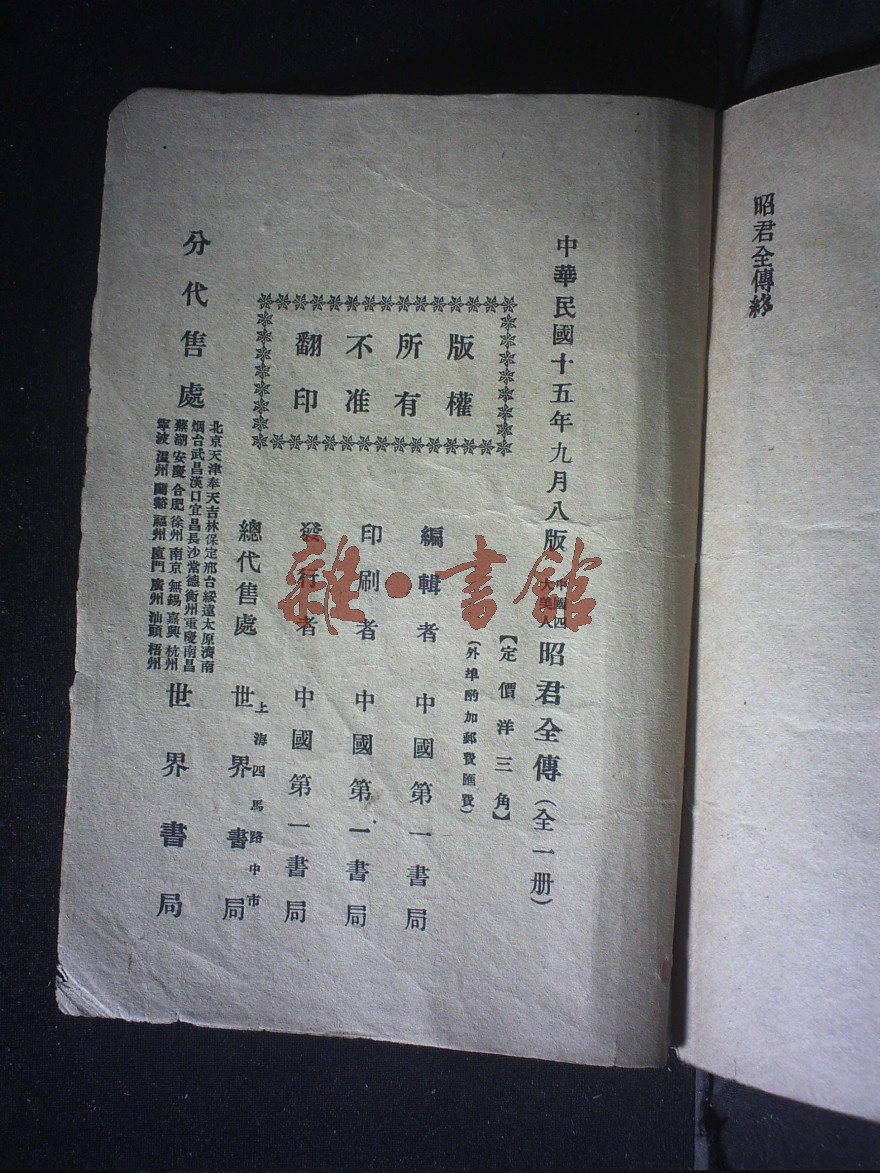 昭君全傳終
中華民國十五年九月八版
中國四大美人
昭君全傳（全一册）
【定價洋三角】
（外埠酌加郵費匯費）
版權
所有
不准
翻印
編輯者 中國第一書局
印刷者 中國第一書局
發行者 中國第一書局
上海四馬路中市
總代售處 世界書局
分代售處
北京天津奉天吉林保定邢台綏遠太原濟南
烟台武昌漢口宜昌長沙常德衡州重慶南昌
蕪湖安慶合肥徐州南京無錫嘉興杭州
寧波溫州蘭谿福州廈門廣州汕頭梧州
世界書局
雜·書館